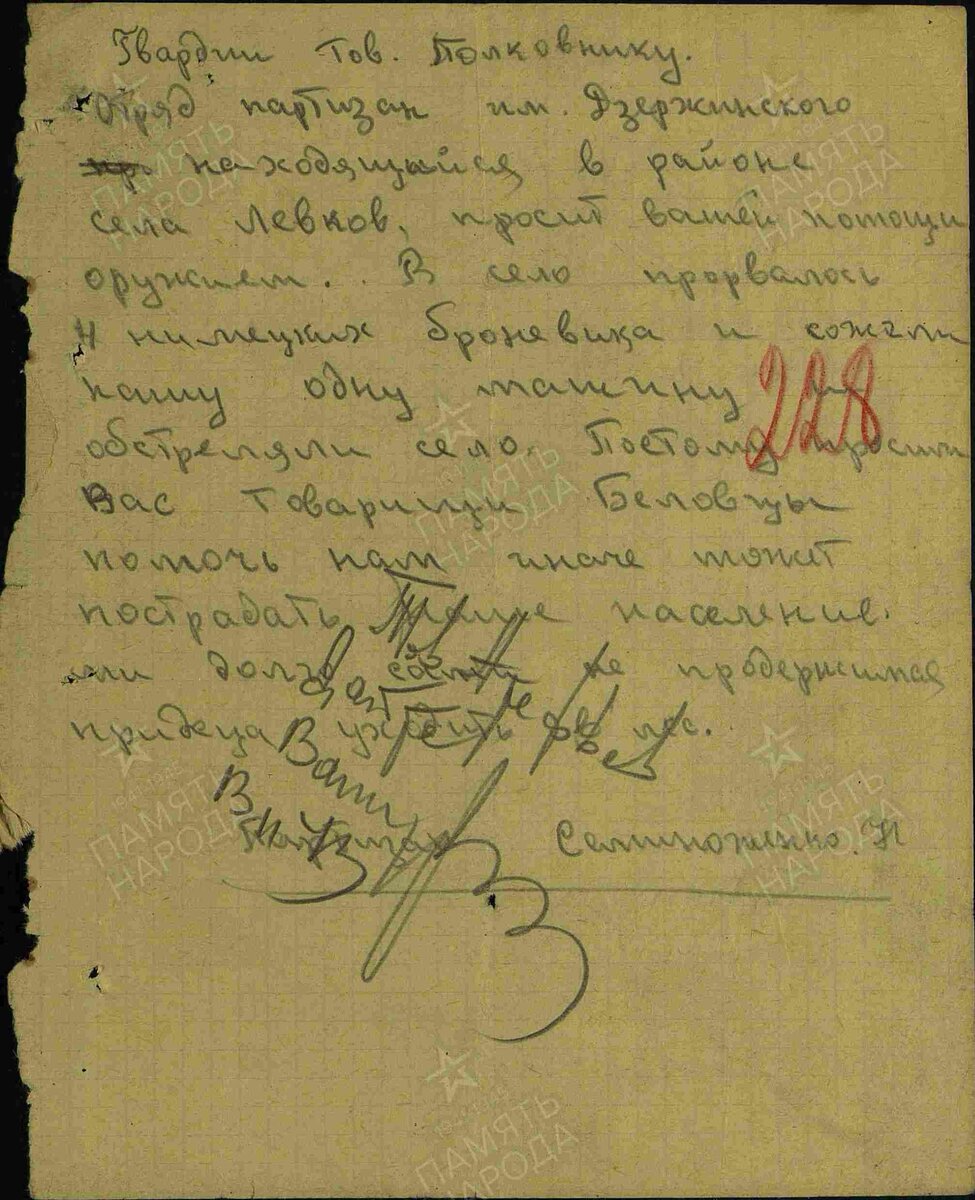 Гвардии тов. Полковнику.
Отряд партизан им. Дзержинского
находящыйся в районе
села Левков, просит вашей помощи
оружием. В село прорвалось
4 нимецких броневика и сожгли
нашу одну машину и
обстреляли село. Поетому просим
Вас товарищи Беловцы
помочь нам иначе может
пострадать население.
ми долго не продержимся
придеца уходить в лес.
Партизан Семиноженко. Н
228
ПАМЯТЬ
НАРОДА